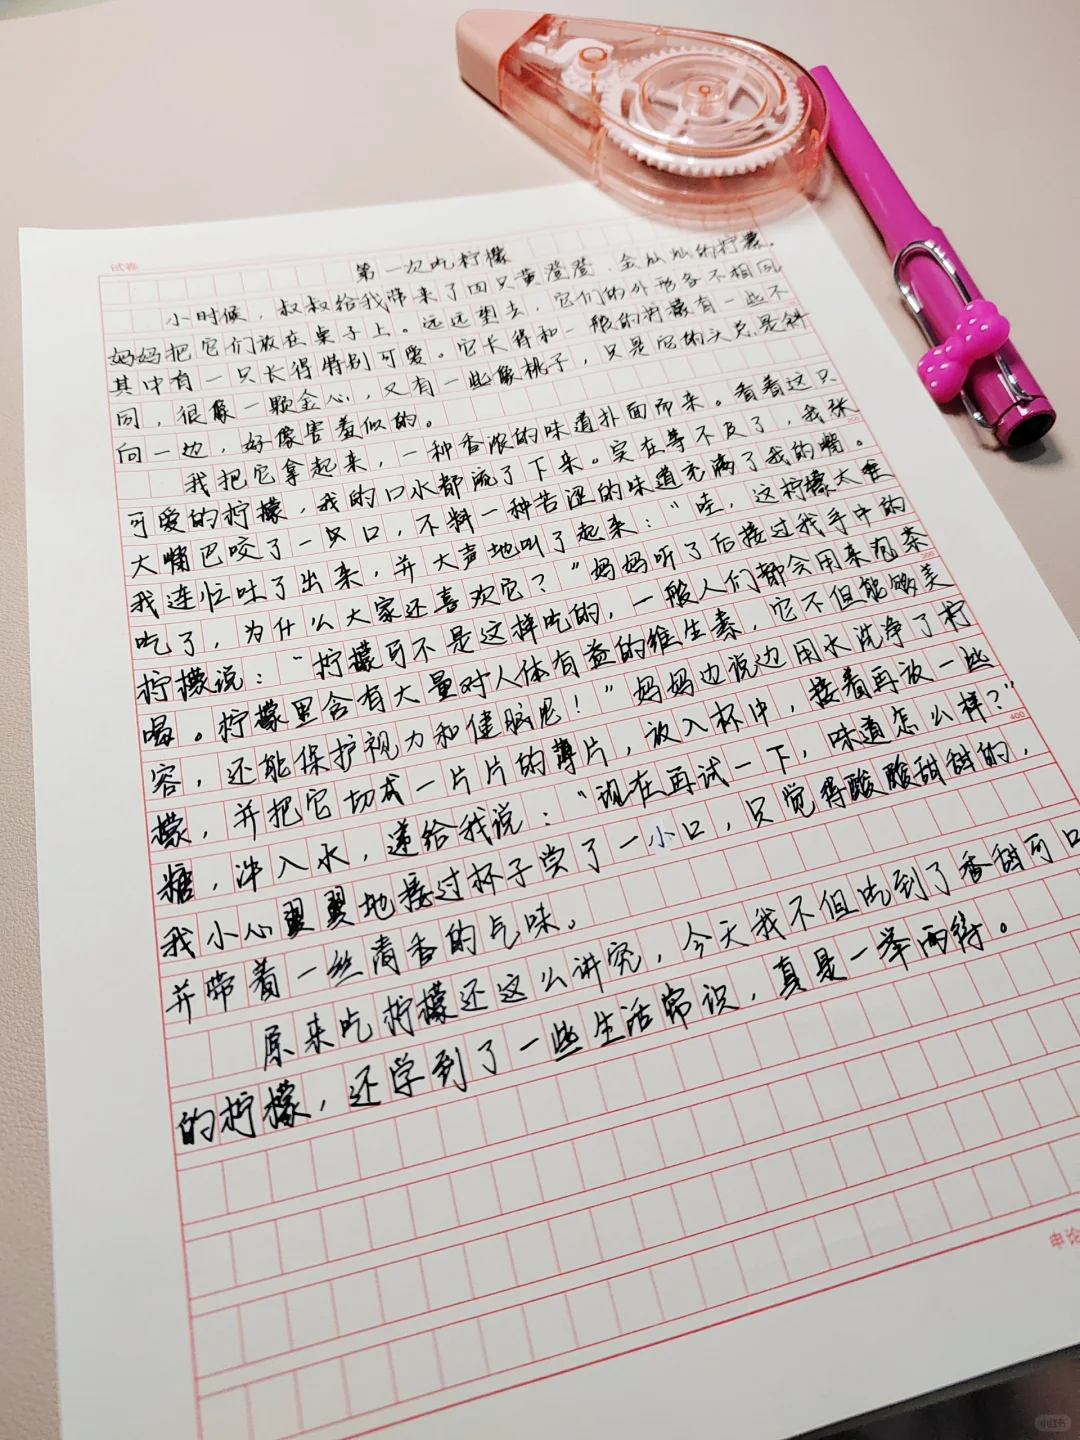 试卷
第一次吃柠檬
小时候，叔叔给我带来了四只黄澄澄、金灿灿的柠檬。
妈妈把它们放在桌子上。远远望去，它们的外形各不相同
其中有一只长得特别可爱。它长得和一般的柠檬有一些不
同，很像一颗金心，又有一些像桃子，只是它的头总是斜
向一边，好像害羞似的。
我把它拿起来，一种香浓的味道扑面而来。看着这只
可爱的柠檬，我的口水都流了下来。实在等不及了，我张
大嘴巴咬了一口，不料一种苦涩的味道充满了我的嘴。
我连忙吐了出来，并大声地叫了起来：“哇，这柠檬太难
吃了，为什么大家还喜欢它？”妈妈听了后接过我手中的
柠檬说：“柠檬可不是这样吃的，一般人们都会用来泡茶
喝。柠檬里含有大量对人体有益的维生素，它不但能够美
容，还能保护视力和健脑呢！”妈妈边说边用水洗净了柠
檬，并把它切成一片片的薄片，放入杯中，接着再放一些
糖，冲入水，递给我说：“现在再试一下，味道怎么样？”
我小心翼翼地接过杯子尝了一小口，只觉得酸酸甜甜的，
并带着一丝清香的气味。
原来吃柠檬还这么讲究，今天我不但吃到了香甜可口
的柠檬，还学到了一些生活常识，真是一举两得。
200
300
400
申论
小红书